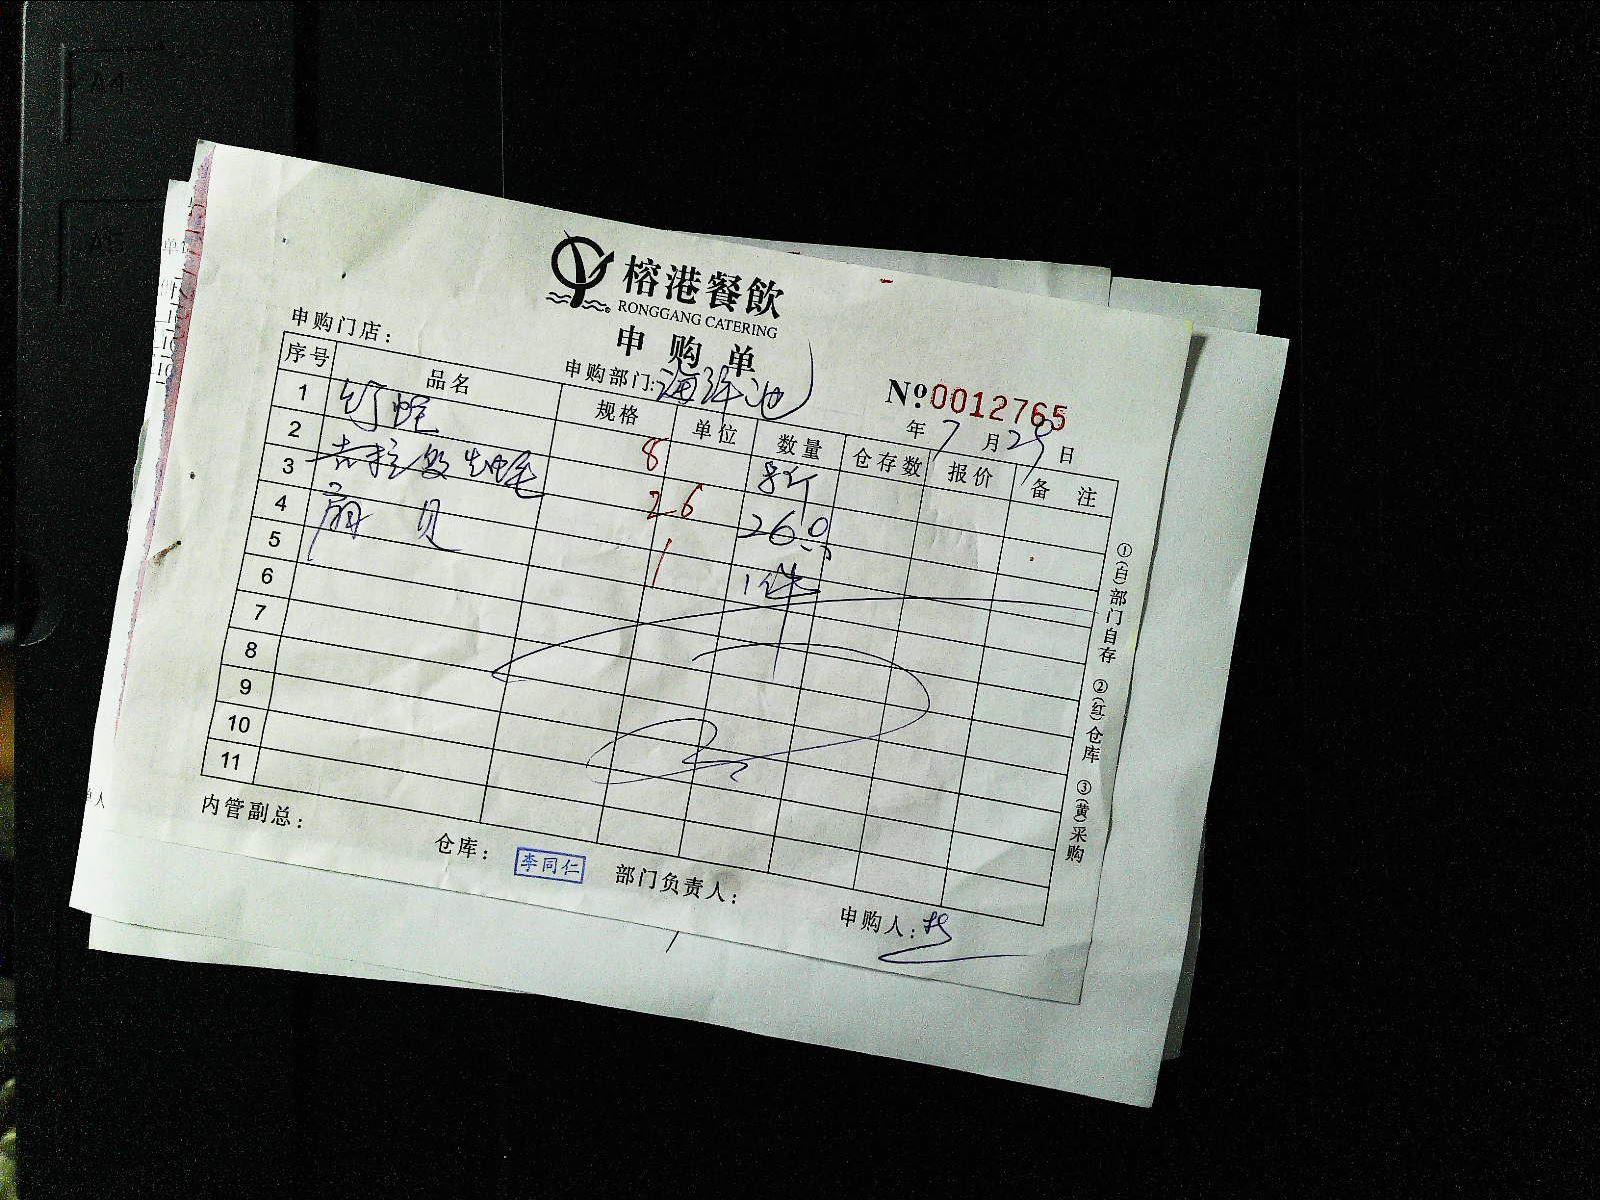 榕港餐飲
RONGGANG CATERING
申购单
申购门店：
申购部门：海鲜池
№ 0012765
年 7 月 29 日
序号 品名 规格 单位 数量 仓存数 报价 备注
1 竹蛏 8 8斤
2 吉拉多生蚝 26 26只
3 扇贝 1 1件
4
5
6
7
8
9
10
11
①(白)部门自存 ②(红)仓库 ③(黄)采购
内管副总：
仓库：李同仁
部门负责人：
申购人：
A4
A5